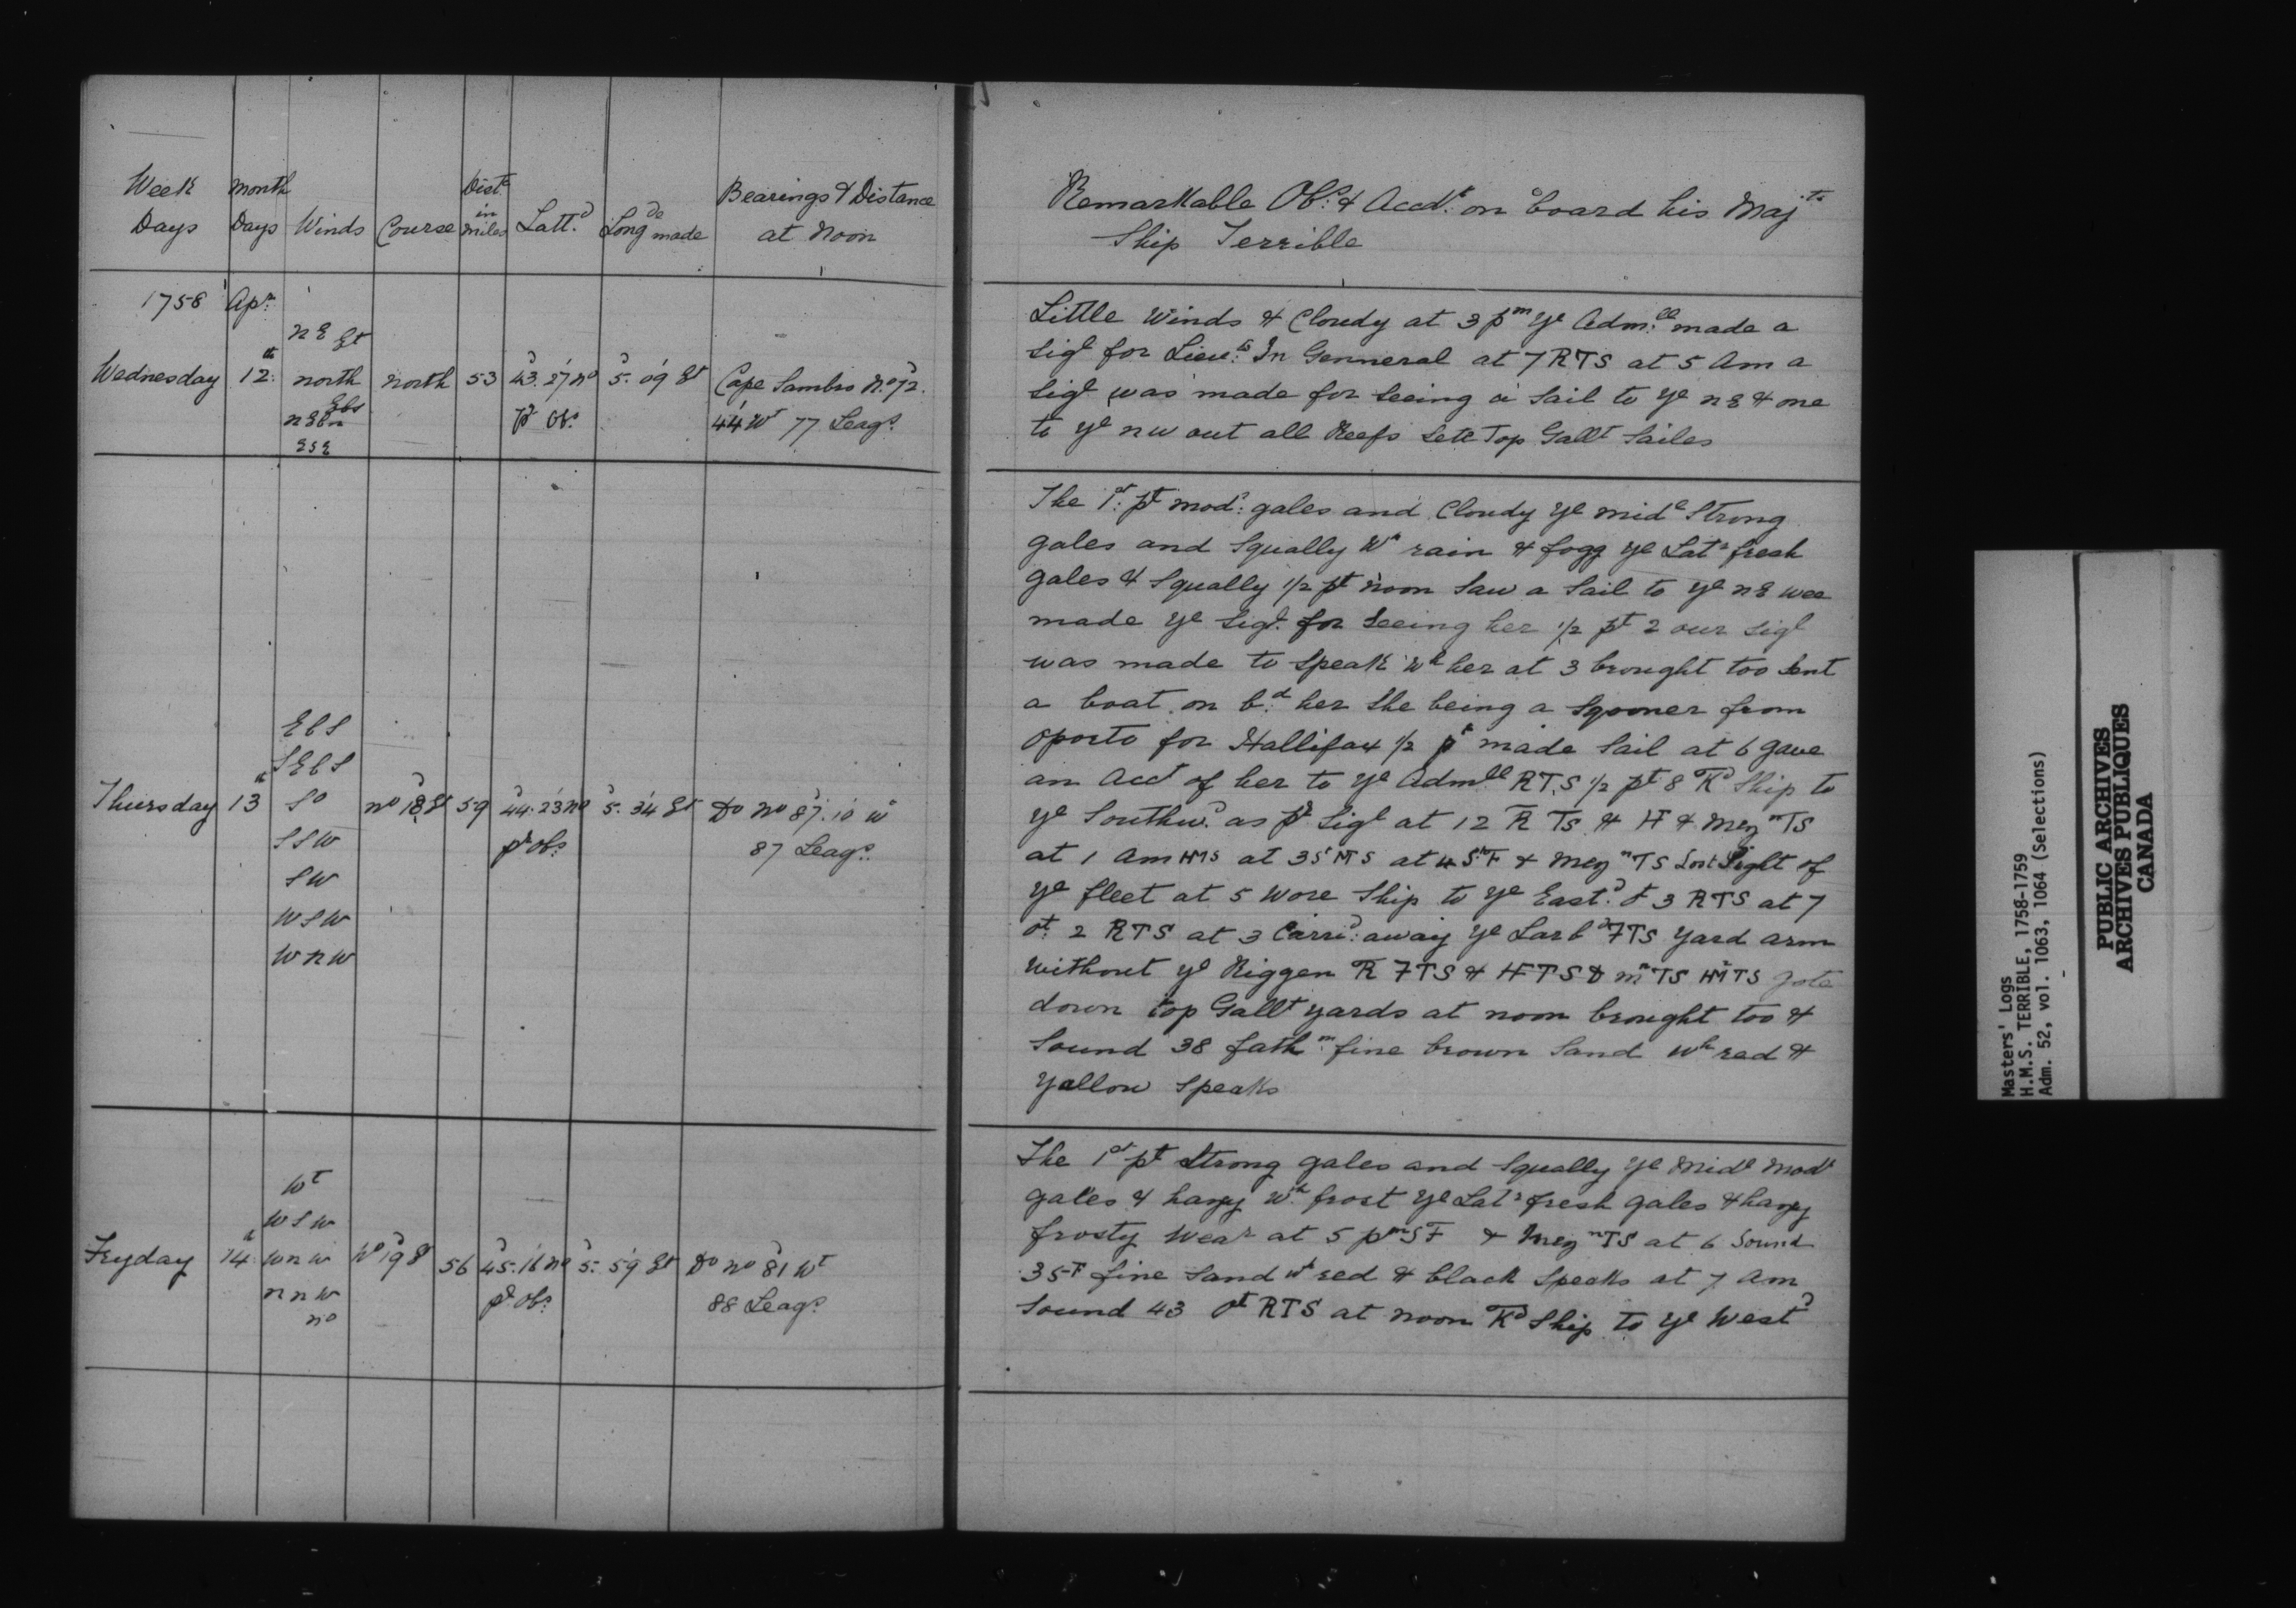 Week Days
Month Days
Winds
Course
Dist.e in miles
Latt.d
Long.de made
Bearings & Distance at Noon
1758 Ap.r
Wednesday 12th
NE Et
north
NEbn Ebs
ESE
north 53 43.27 No 5.09 Et Cape Sambro No 72.
pr Obs. 44 Wt 77 Leags.
Thursday 13th
EbS
SEbS
So
SSW
SW
WSW
WNW
No 18 Et 59 44.23 No 5.34 Et Do No 87.10 W
pr Obs. 87 Leags.
Fryday 14th
Wt
WSW
WnW
nnW
no
No 19 Et 56 45.16 No 5.59 Et Do No 81 Wt
pr Obs. 88 Leags.
Remarkable Obs. & Accdts. on board his Majts
Ship Terrible
Little Winds & Cloudy at 3 pm ye Adm.ll made a
Sigl for Lieu.ts In Genneral at 7 RTS at 5 Am a
Sigl was made for Seeing a Sail to ye NE & one
to ye NW out all Reefs Sett Top Gallt Sailes
The 1st pt mod: gales and Cloudy ye midl Strong
gales and Squally Wh rain & fogg ye Latr fresh
gales & Squally 1/2 pt Noon Saw a Sail to ye NE wee
made ye Sigl for Seeing her 1/2 pt 2 our Sigl
was made to Speak Wh her at 3 brought too Sent
a boat on bd her She being a Sgooner from
Oporto for Hallifax 1/2 pt made Sail at 6 gave
an Acct of her to ye Admll RTS 1/2 pt 8 Td Ship to
ye Southwd. as pr Sigl at 12 R TS & HF & Mezn TS
at 1 Am HMS at 3 St MS at 4 St F & Mezn TS Lost Sight of
ye fleet at 5 Wore Ship to ye Eastd & 3 RTS at 7
ot 2 RTS at 3 Carrid away ye Larbd FTS Yard arm
Without ye Riggen R FTS & HFTS & mn TS HMTS Gote
down top Gallt yards at noon brought too &
Sound 38 fathm fine brown Sand Wh red &
Yallow Speaks
The 1st pt Strong gales and Squally ye Midl Modt
gales & hazy Wh frost ye Latr fresh gales & hazy
frosty Wear at 5 pm SF & Mezn TS at 6 Sound
35 F fine Sand Wh red & black Speaks at 7 Am
Sound 43 Ot RTS at noon Td Ship to ye Westd
Masters' Logs
H.M.S. TERRIBLE, 1758-1759
Adm. 52, vol. 1063, 1064 (Selections)
PUBLIC ARCHIVES
ARCHIVES PUBLIQUES
CANADA